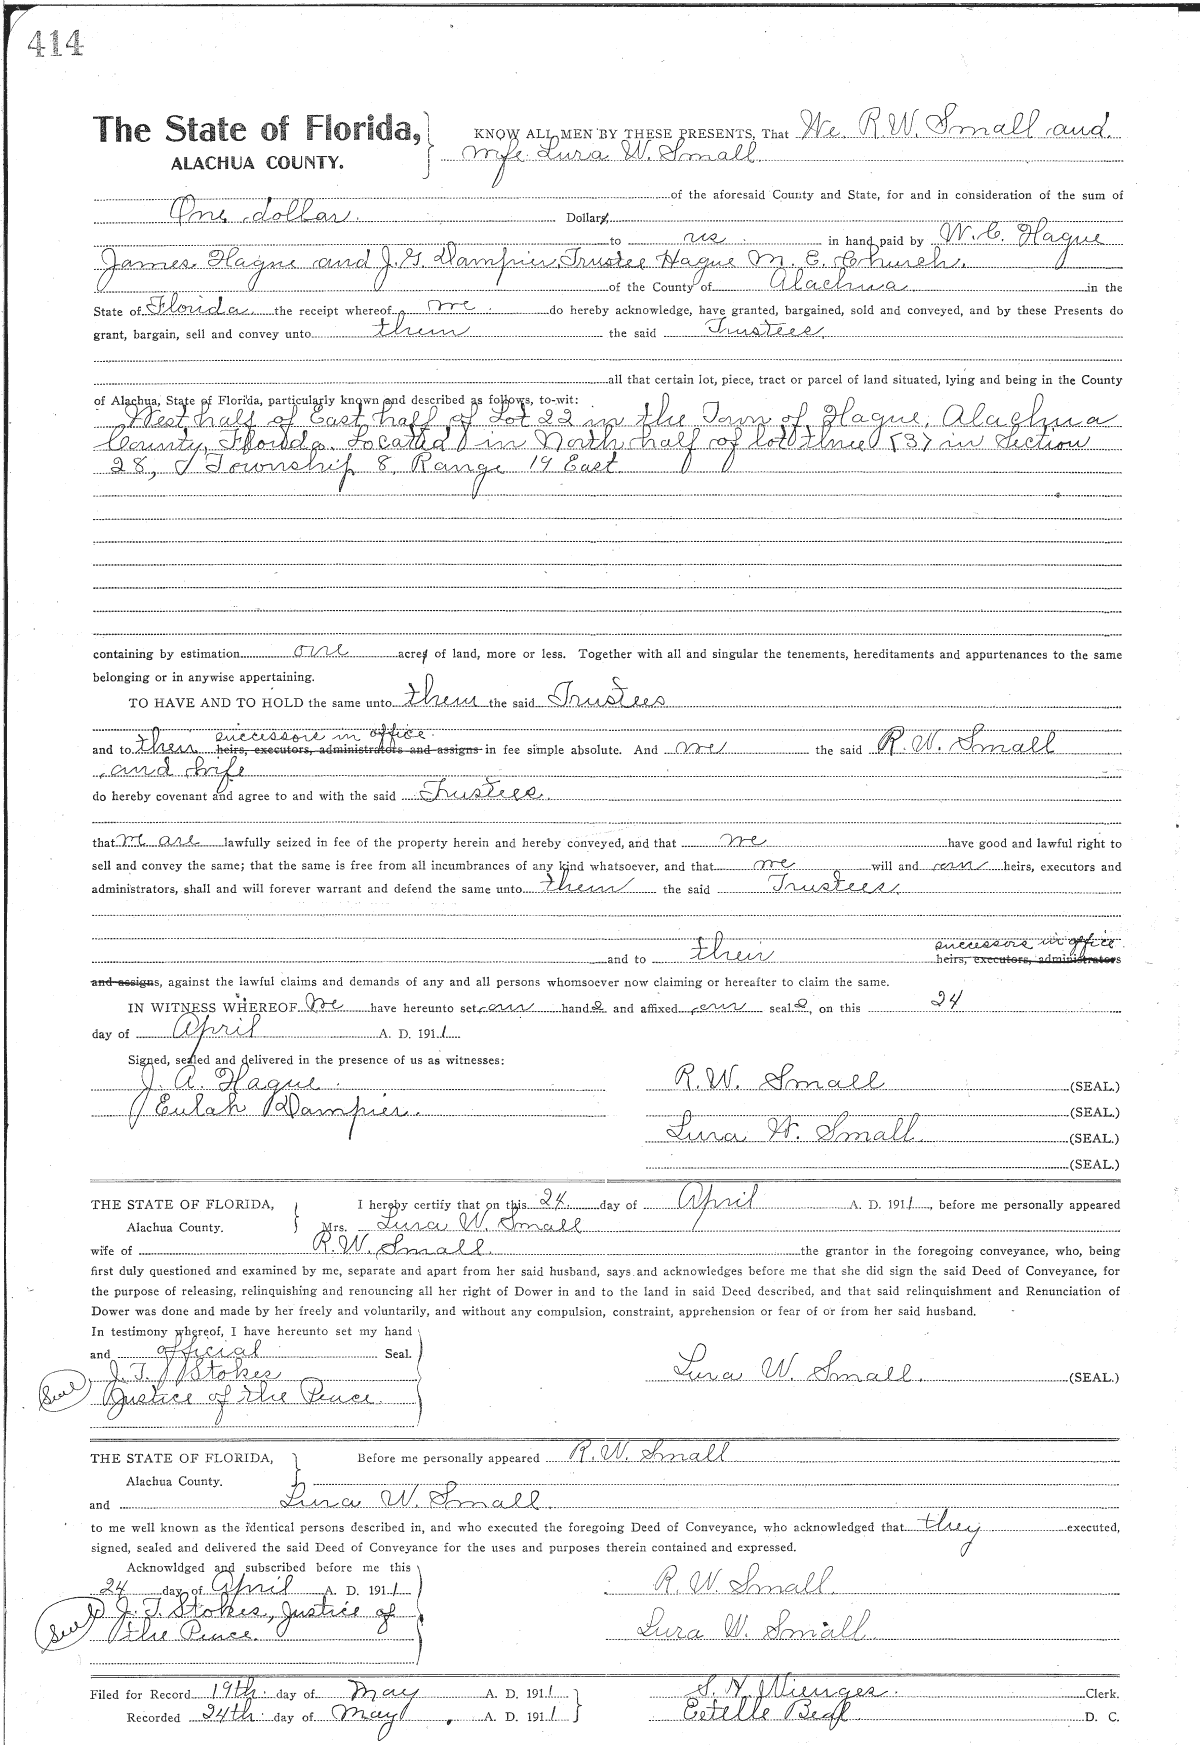 414
The State of Florida,
ALACHUA COUNTY.
KNOW ALL MEN BY THESE PRESENTS, That We R.W. Small and
wife Lura W. Small
of the aforesaid County and State, for and in consideration of the sum of
One dollar Dollars,
to us in hand paid by W. C. Hague
James Hague and J. G. Dampier, Trustee Hague M. E. Church.
of the County of Alachua in the
State of Florida the receipt whereof we do hereby acknowledge, have granted, bargained, sold and conveyed, and by these Presents do
grant, bargain, sell and convey unto them the said Trustees,
all that certain lot, piece, tract or parcel of land situated, lying and being in the County
of Alachua, State of Florida, particularly known and described as follows, to-wit:
West half of East half of Lot 22 in the Town of Hague, Alachua
County, Florida. Located in North half of lot three (3) in Section
28, Township 8, Range 19 East
containing by estimation one acres of land, more or less. Together with all and singular the tenements, hereditaments and appurtenances to the same
belonging or in anywise appertaining.
TO HAVE AND TO HOLD the same unto them the said Trustees
successors in office
and to their heirs, executors, administrators and assigns in fee simple absolute. And we the said R. W. Small
and wife
do hereby covenant and agree to and with the said Trustees.
that we are lawfully seized in fee of the property herein and hereby conveyed, and that we have good and lawful right to
sell and convey the same; that the same is free from all incumbrances of any kind whatsoever, and that we will and our heirs, executors and
administrators, shall and will forever warrant and defend the same unto them the said Trustees,
successors in office
and to their heirs, executors, administrators
and assigns, against the lawful claims and demands of any and all persons whomsoever now claiming or hereafter to claim the same.
IN WITNESS WHEREOF We have hereunto set our hands and affixed our seals, on this 24
day of April A. D. 1911
Signed, sealed and delivered in the presence of us as witnesses:
J. A. Hague. R.W. Small (SEAL.)
Eulah Dampier. (SEAL.)
Lura W. Small (SEAL.)
(SEAL.)
THE STATE OF FLORIDA, I hereby certify that on this 24 day of April A. D. 1911, before me personally appeared
Alachua County. Mrs. Lura W. Small
wife of R.W. Small the grantor in the foregoing conveyance, who, being
first duly questioned and examined by me, separate and apart from her said husband, says and acknowledges before me that she did sign the said Deed of Conveyance, for
the purpose of releasing, relinquishing and renouncing all her right of Dower in and to the land in said Deed described, and that said relinquishment and Renunciation of
Dower was done and made by her freely and voluntarily, and without any compulsion, constraint, apprehension or fear of or from her said husband.
In testimony whereof, I have hereunto set my hand
and official Seal.
J. T. Stokes Lura W. Small. (SEAL.)
Seal Justice of the Peace.
THE STATE OF FLORIDA, Before me personally appeared R.W. Small
Alachua County.
and Lura W. Small.
to me well known as the identical persons described in, and who executed the foregoing Deed of Conveyance, who acknowledged that they executed,
signed, sealed and delivered the said Deed of Conveyance for the uses and purposes therein contained and expressed.
Acknowldged and subscribed before me this
24 day of April A. D. 1911 R. W. Small
Seal J. T. Stokes, Justice of
the Peace. Lura W. Small.
Filed for Record 19th. day of May A. D. 1911 S. H. Wienges. Clerk.
Recorded 24th. day of May A. D. 1911 Estelle Beal D. C.